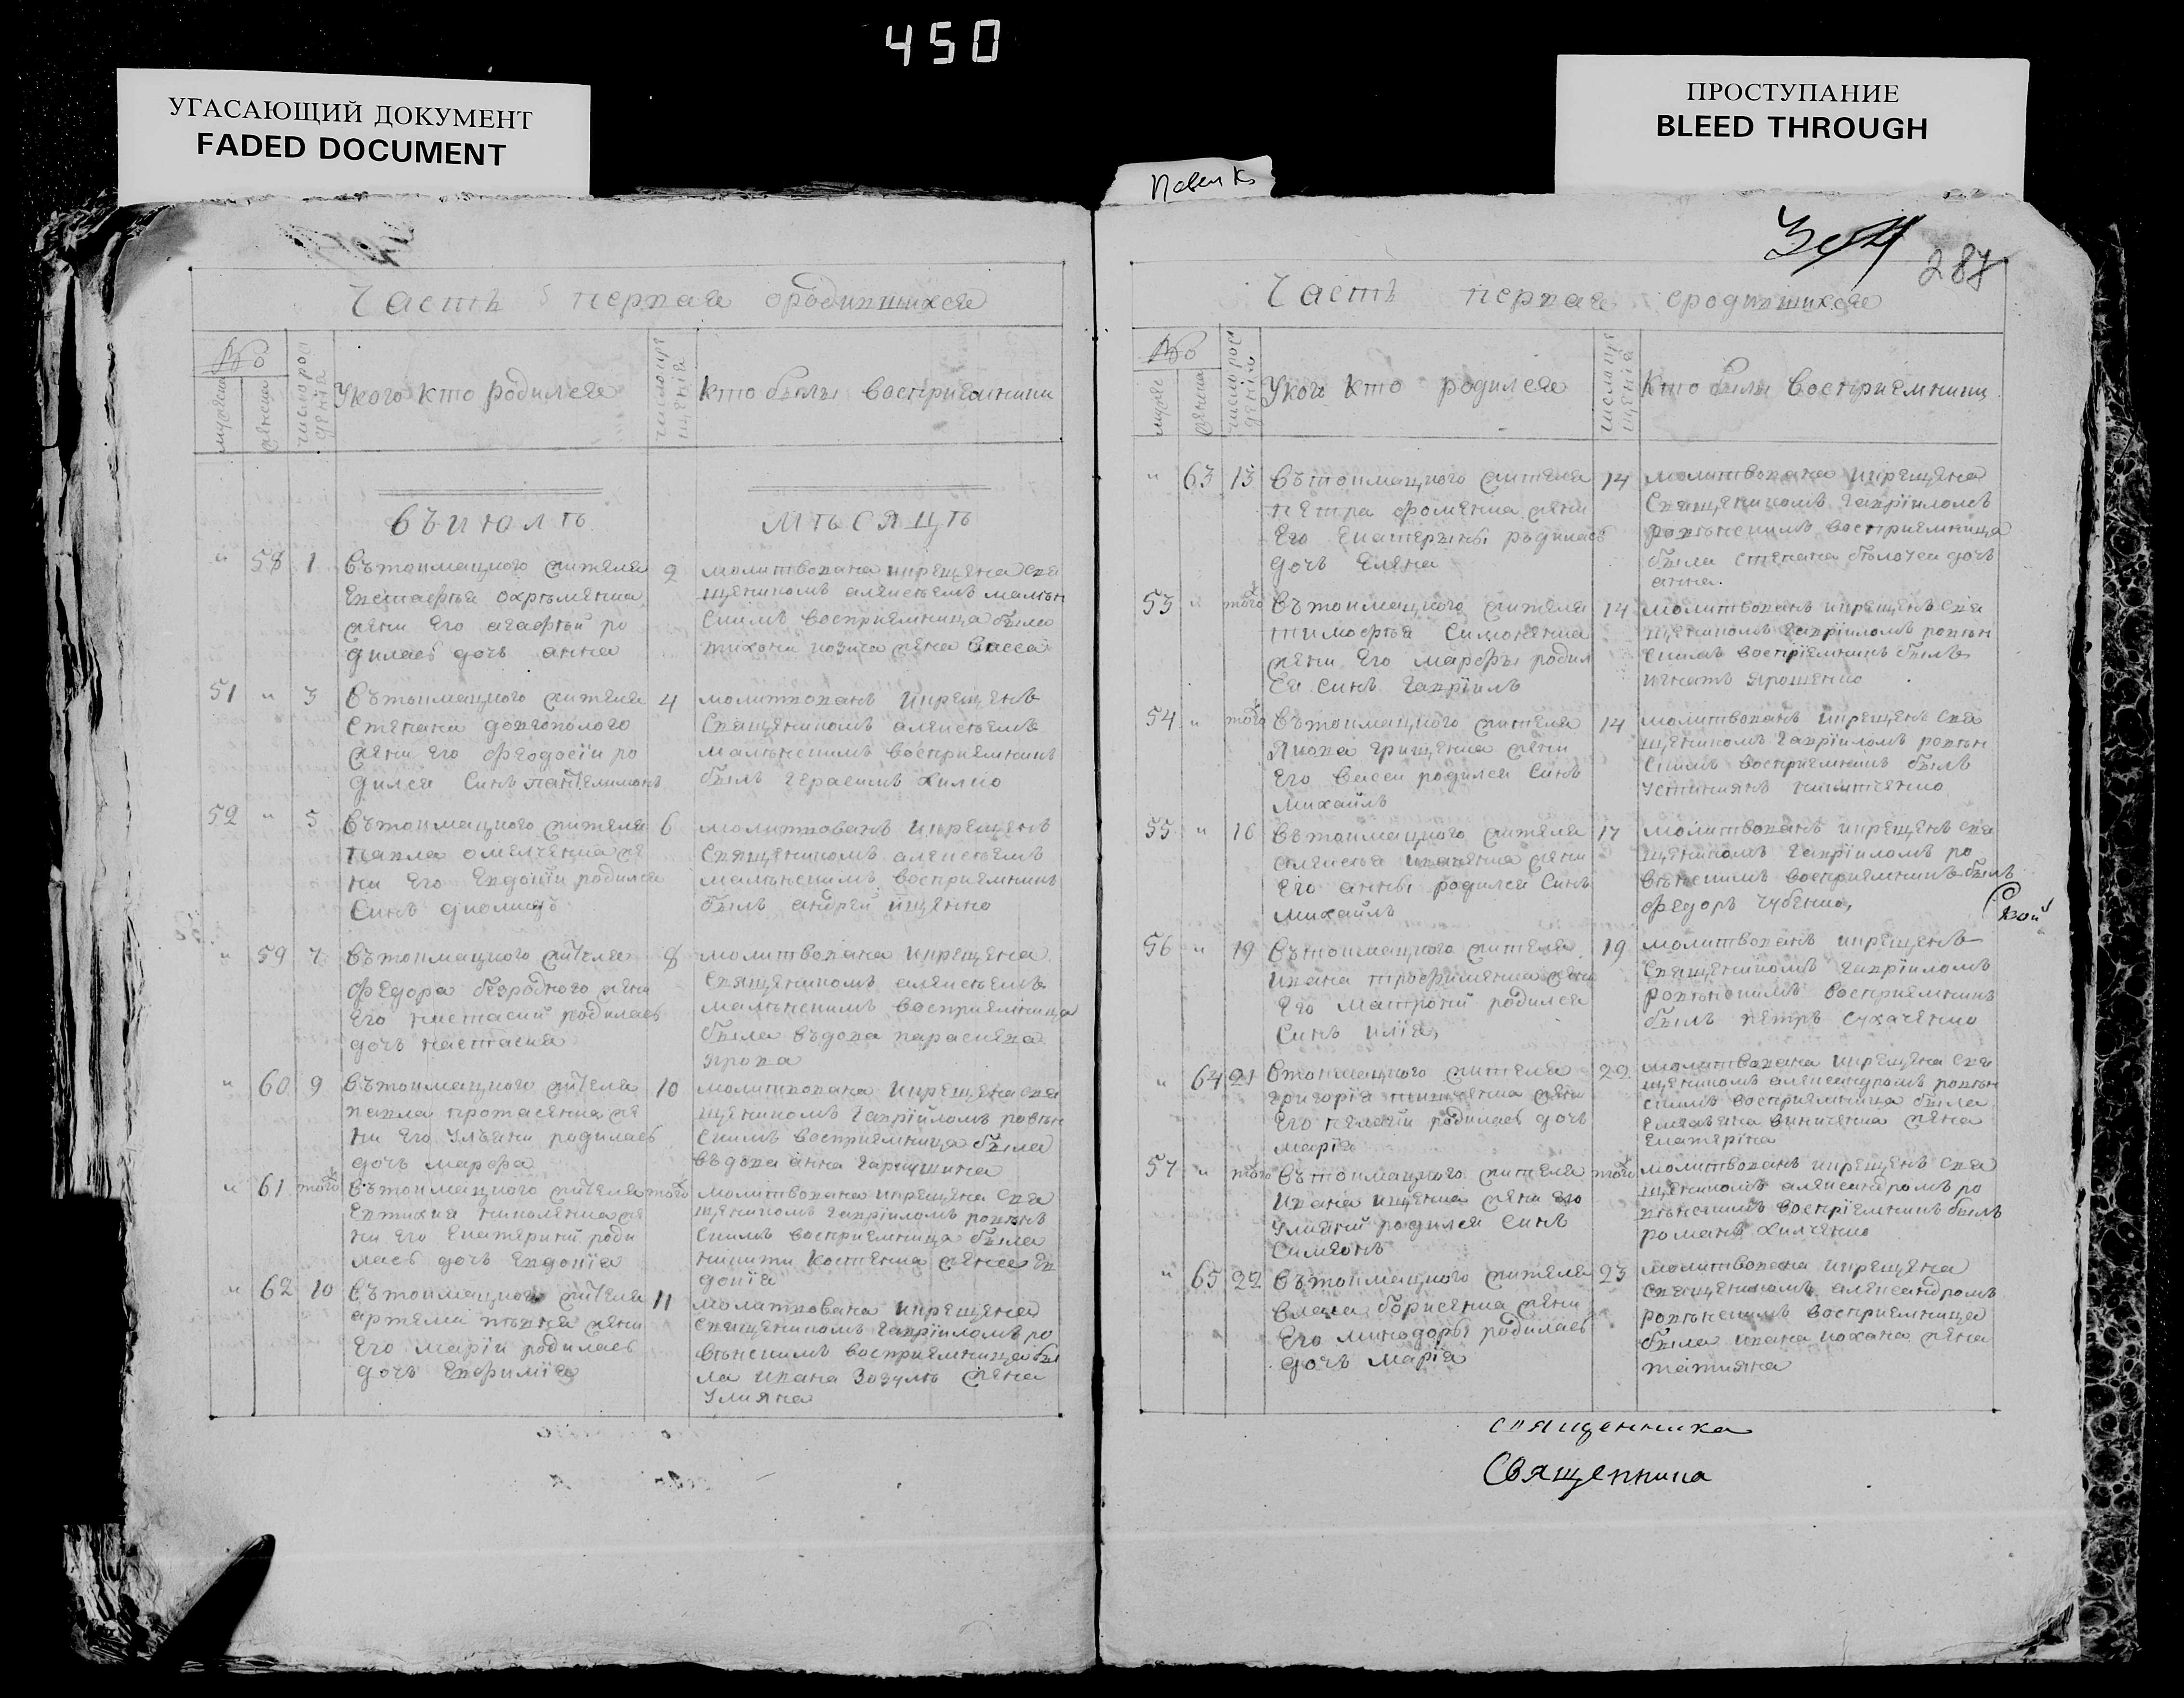 450
УГАСАЮЩИЙ ДОКУМЕНТ
FADED DOCUMENT
ПРОСТУПАНИЕ
BLEED THROUGH
Павел К.
287
Часть первая ородившихся
№
мужеска
женска
число рож
денія
Укого кто родился
число кре
щенія
Кто былъ восприемники
въ июлѣ
мѣсяцѣ
" 58 1
вътокмацкого жителя
Евстафѣя охрѣменка
жени Его агафѣи ро
дилась дочь анна
2
молитвована икрещена свя
щеникомъ алексѣемъ малѣн
скимъ восприемница была
тихона козича жена Васса
51 " 3
Вътокмацкого жителя
Степана довгополого
жени Его феодосіи ро
дился Синъ пантелимонъ
4
молитвованъ икрещенъ
Священикомъ алексѣемъ
малѣнскимъ восприемникъ
былъ герасимъ хилко
52 " 5
Вътокмацкого жителя
павла омелченка же
ни Его Евдокіи родился
Синъ диомидъ
6
молитвованъ икрещенъ
Священикомъ алексѣемъ
малѣнскимъ восприемникъ
былъ андрей ищенко
" 59 7
Вътокмацкого жителя
федора безродного жени
Его настасии родилась
дочь настасия
8
молитвована икрещена
Священикомъ алексѣемъ
малѣнскимъ восприемница
была въдова параскева
" 60 9
Вътокмацкого жителя
павла протасенка же
ни Его Улъяни родилась
дочь марфа
10
молитвована икрещена свя
щеникомъ гавріиломъ ровѣн
скимъ восприемница была
въдова анна гаркушина
" 61 того
Вътокмацкого жителя
Евтихия николенка же
ни Его Екатерини роди
лась дочь Евдокіа
того
молитвована икрещена свя
щеникомъ гавріиломъ ровѣн
скимъ восприемница была
никити костенка жена Ев
докіа
" 62 10
Вътокмацкого жителя
артема пѣвня жени
Его маріи родилась
дочь Евфиміа
11
молитвована икрещена
Священикомъ гавріиломъ ро
вѣнскимъ восприемница бы
ла ивана Зозулѣ жена
Улияна
Часть первая ородившихся
№
муже
женска
число рож
денія
Укого кто родился
число кре
щенія
Кто были восприемники
" 63 13
Вътокмацкого жителя
петра фоменка жени
Его Екатерыны родилась
дочь Елена
14
молитвована икрещена
Священикомъ гавріиломъ
ровѣнскимъ восприемница
была степана бѣлочки дочь
анна
53 " того
Вътокмацкого жителя
тимофѣя Симоненка
жени Его марфы родил
ся синъ гавріилъ
14
молитвованъ икрещенъ свя
щеникомъ гавріиломъ ровѣн
скимъ восприемникъ былъ
игнатъ ярошенко
54 " того
Вътокмацкого жителя
Якова грищенка жени
Его Васси родился Синъ
михаилъ
14
молитвованъ икрещенъ свя
щеникомъ гавріиломъ ровѣн
скимъ восприемникъ былъ
55 " 16
Вътокмацкого жителя
алексѣя иваненка жени
Его анны родился Синъ
михаилъ
17
молитвованъ икрещенъ свя
щеникомъ гавріиломъ ро
вѣнскимъ восприемникъ былъ
федоръ чубенко
56 " 19
Вътокмацкого жителя
ивана трофименка жени
Его матрони родился
Синъ иліа
19
молитвованъ икрещенъ
Священикомъ гавріиломъ
ровѣнскимъ восприемникъ
былъ петръ сукаченко
" 64 21
Втокмацкого жителя
григоріа жени
Его пелагіи родилась дочь
маріа
22
молитвована икрещена свя
щеникомъ александромъ ровѣн
скимъ восприемница была
Емелъяна виниченка жена
Екатерина
57 " того
Вътокмацкого жителя
Ивана ищенка жени Его
Улияни родился Синъ
Симеонъ
того
молитвованъ икрещенъ свя
щеникомъ александромъ ро
вѣнскимъ восприемникъ былъ
романъ хилченко
" 65 22
Вътокмацкого жителя
власа борисенка жени
Его минодоры родилась
дочь маріа
23
молитвована икрещена
Священикомъ александромъ
ровѣнскимъ восприемница
была ивана кохана жена
татияна
священника
Священника